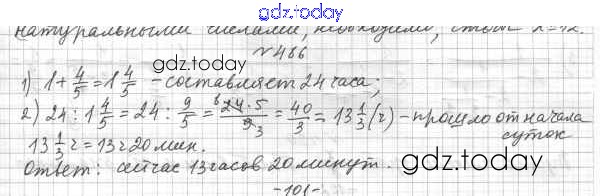 gdz.today
натуральными числами, необходимо, чтоб
gdz.today
№486
1) 1+4/5=1 4/5 - составляет 24 часа;
2) 24 : 1 4/5 = 24 : 9/5 = 24·5/9 = 40/3 = 13 1/3 (ч) - прошло от начала
суток
13 1/3 ч = 13ч 20 мин.
Ответ: сейчас 13 часов 20 минут.
gdz.today
-101-